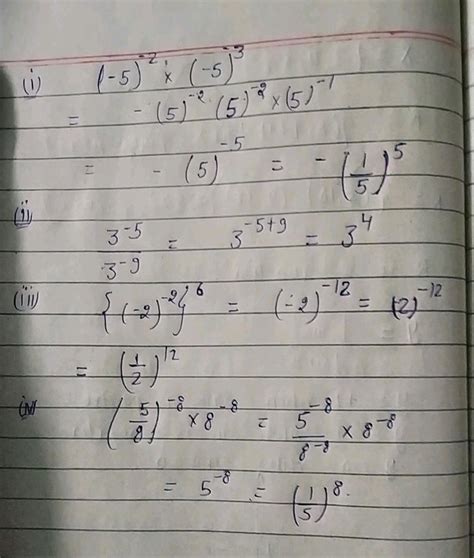 (i) (-5)^-2 × (-5)^-3
= - (5)^-2 (5)^-2 × (5)^-1
= - (5)^-5 = - (1/5)^5
(ii) 3^-5 / 3^-9 = 3^-5+9 = 3^4
(iii) {(-2)^-2}^6 = (-2)^-12 = (2)^-12
= (1/2)^12
(iv) (5/8)^-8 × 8^-8 = 5^-8 / 8^-8 × 8^-8
= 5^-8 = (1/5)^8.